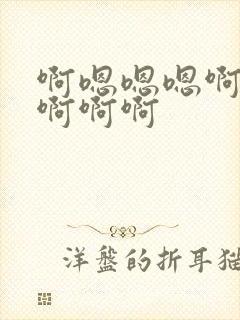 啊嗯嗯嗯啊
啊啊啊
洋盤的折耳猫